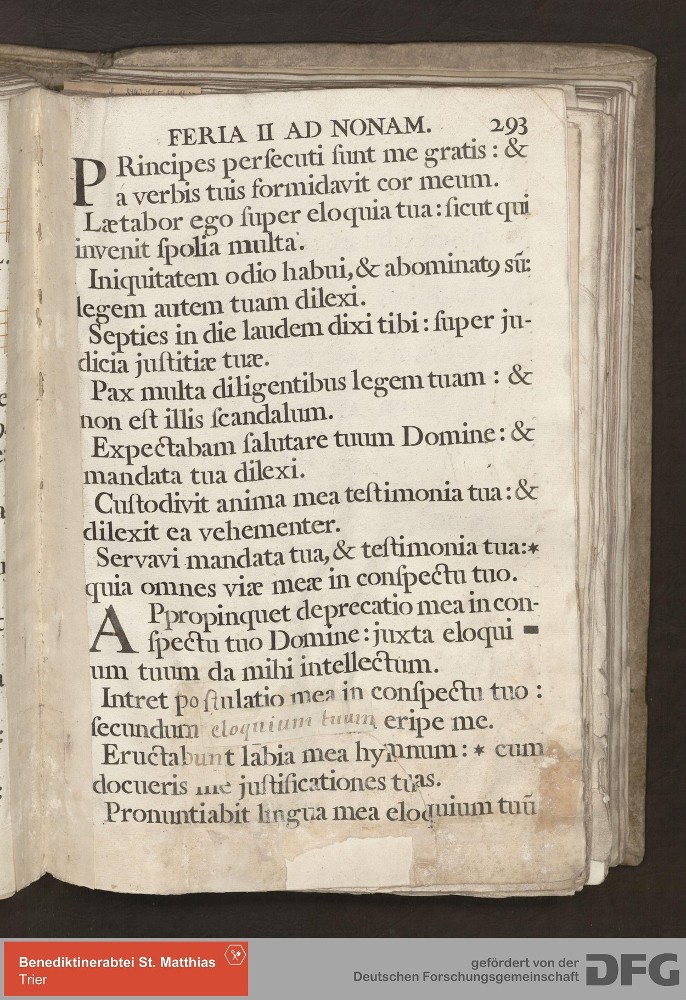 FERIA II AD NONAM. 293
PRincipes perſecuti ſunt me gratis : &
a verbis tuis formidavit cor meum.
Lætabor ego ſuper eloquia tua : ſicut qui
invenit ſpolia multa.
Iniquitatem odio habui, & abominatꝰ sũ:
legem autem tuam dilexi.
Septies in die laudem dixi tibi : ſuper ju-
dicia juſtitiæ tuæ.
Pax multa diligentibus legem tuam : &
non eſt illis ſcandalum.
Expectabam ſalutare tuum Domine : &
mandata tua dilexi.
Cuſtodivit anima mea teſtimonia tua : &
dilexit ea vehementer.
Servavi mandata tua, & teſtimonia tua:*
quia omnes viæ meæ in conſpectu tuo.
APpropinquet deprecatio mea in con-
ſpectu tuo Domine : juxta eloqui-
um tuum da mihi intellectum.
Intret poſtulatio mea in conſpectu tuo :
ſecundum eloquium tuum eripe me.
Eructabunt labia mea hymnum : * cum
docueris me juſtificationes tuas.
Pronuntiabit lingua mea eloquium tuũ
Benediktinerabtei St. Matthias
Trier
gefördert von der
Deutschen Forschungsgemeinschaft
DFG